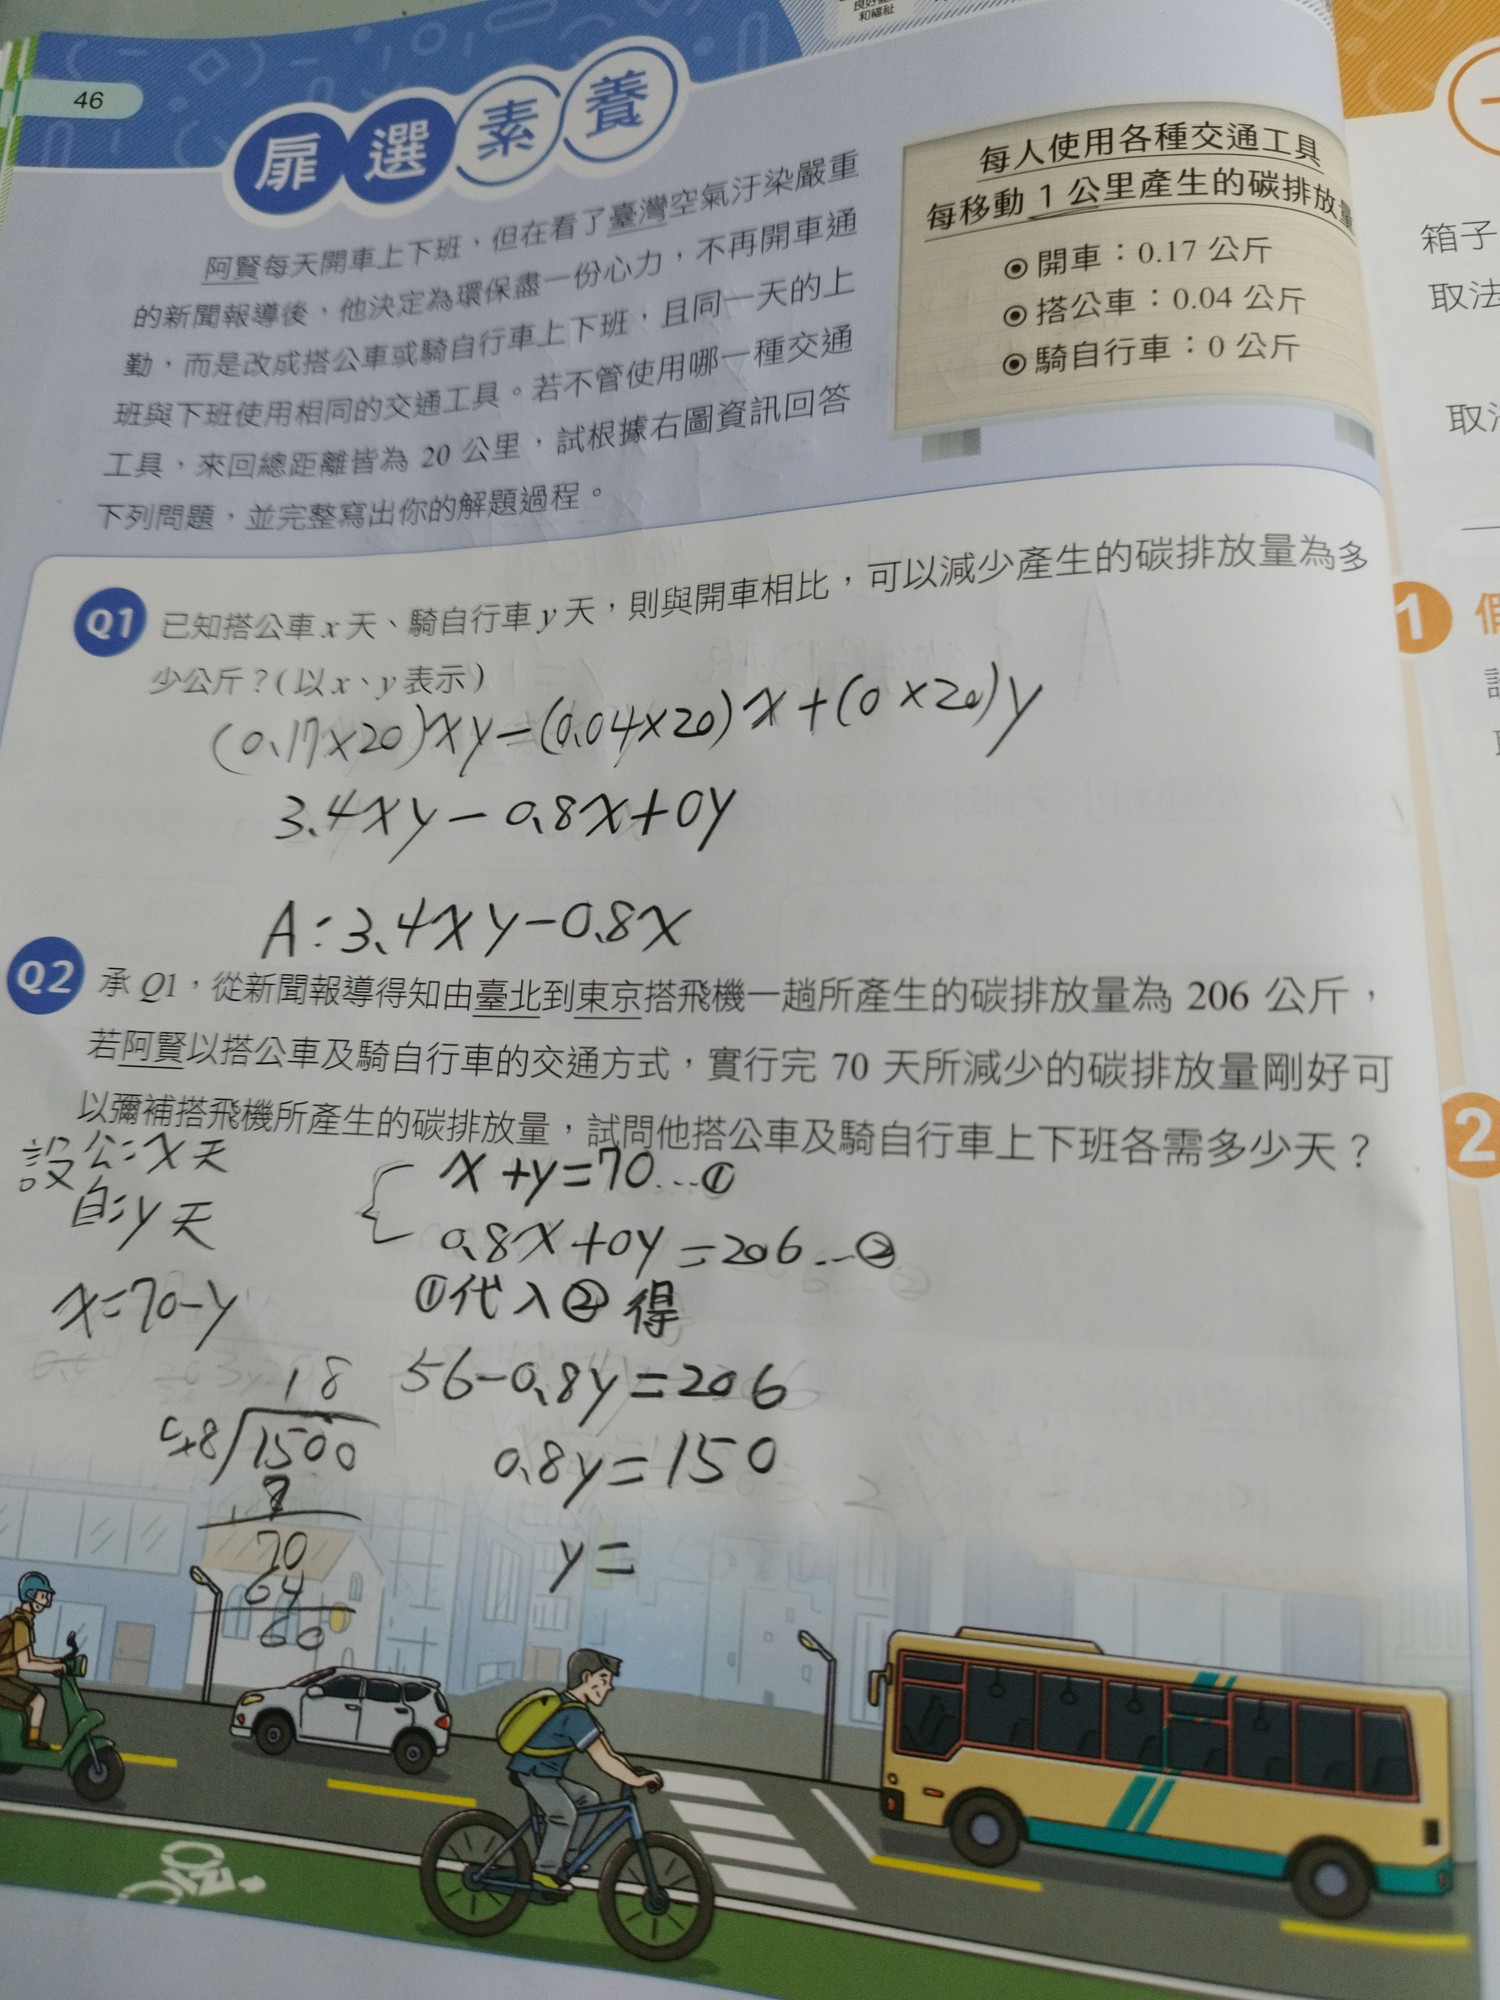 良好健
和福祉
46
扉選素養
阿賢每天開車上下班，但在看了臺灣空氣汙染嚴重
的新聞報導後，他決定為環保盡一份心力，不再開車通
勤，而是改成搭公車或騎自行車上下班，且同一天的上
班與下班使用相同的交通工具。若不管使用哪一種交通
工具，來回總距離皆為 20 公里，試根據右圖資訊回答
下列問題，並完整寫出你的解題過程。
每人使用各種交通工具
每移動 1 公里產生的碳排放量
開車：0.17 公斤
搭公車：0.04 公斤
騎自行車：0 公斤
Q1 已知搭公車 x 天、騎自行車 y 天，則與開車相比，可以減少產生的碳排放量為多
少公斤？(以 x、y 表示)
(0.17×20)xy-(0.04×20)x+(0×20)y
3.4xy-0.8x+0y
A:3.4xy-0.8x
Q2 承 Q1，從新聞報導得知由臺北到東京搭飛機一趟所產生的碳排放量為 206 公斤，
若阿賢以搭公車及騎自行車的交通方式，實行完 70 天所減少的碳排放量剛好可
以彌補搭飛機所產生的碳排放量，試問他搭公車及騎自行車上下班各需多少天？
設公:x天
自:y天
x=70-y
x+y=70...①
0.8x+0y=206...②
①代入②得
56-0.8y=206
0.8y=150
y=
18
1500
8
70
64
60
箱子
取法
1
2